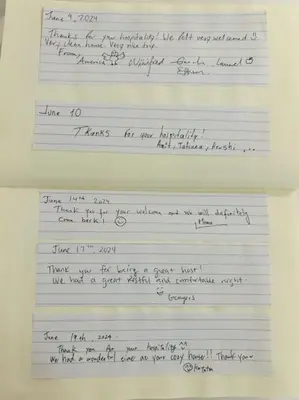 June 9, 2024
Thanks for your hospitality! We felt very welcomed
Very clean house. Very nice trip.
From,
America Winifred
June 10
Thanks for your hospitality!
Amit, Tatiana, Arushi, ...
June 14th 2024
Thank you for your welcome and we will definitely
come back!
June 17th, 2024
Thank you for being a great host!
We had a great restful and comfortable night.
June 19th, 2024
Thank you for your hospitality
We had a wonderful time at your cozy house!! Thank you~